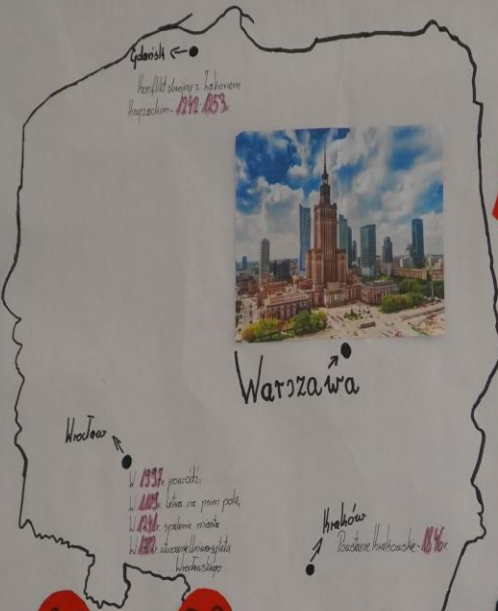 Gdańsk
Konflikt zbrojny z Zakonem
Krzyżackim 1242-1253.
Warszawa
Wrocław
W 1997r. powódź,
W 1109r. bitwa na psim polu,
W 1241r. spalenie miasta
W 1702r. utworzenie Uniwersytetu
Wrocławskiego
Kraków
Powstanie Krakowskie - 1846 r.